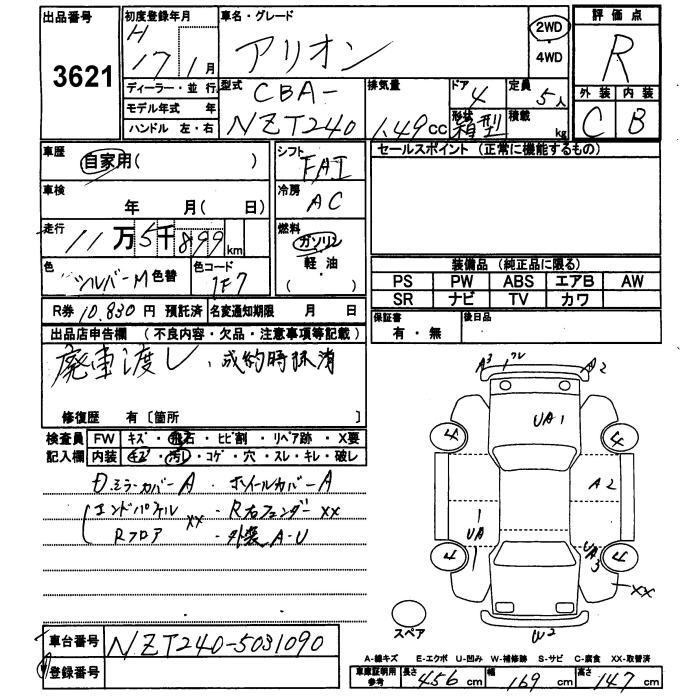 出品番号
3621
初度登録年月
H 17 1月
ディーラー・並行
モデル年式 年
ハンドル 左・右
車名・グレード
アリオン
2WD
・
4WD
評価点
R
外装 内装
C B
型式
CBA-
NZT240
排気量
1.49cc
ドア
4
形状
箱型
定員
5人
積載
kg
車歴
自家用( )
車検
年 月( 日)
走行
11万5千899km
色
シルバーM 色替
色コード
1F7
R券 10.830円 預託済 名変通知期限 月 日
シフト
FAT
冷房
AC
燃料
ガソリン
軽油
( )
セールスポイント (正常に機能するもの)
装備品 (純正品に限る)
PS PW ABS エアB AW
SR ナビ TV カワ
保証書
有・無
後日品
出品店申告欄 (不良内容・欠品・注意事項等記載)
廃車渡し、成約時抹消
修復歴 有〔箇所 〕
検査員 FW キズ・飛石・ヒビ割・リペア跡・X要
記入欄 内装 キズ・汚レ・コゲ・穴・スレ・キレ・破レ
D.ミラーカバーA ・ホイールカバーA
エンドパネル XX ・R右フェンダーXX
Rフロア ・外装A-U
車台番号 NZT240-5031090
登録番号
A3 A2
UA1
4 4
A2
UA1
4 4
UA3
XX
W2
スペア
A-線キズ E-エクボ U-凹み W-補修跡 S-サビ C-腐食 XX-取替済
車庫証明用
参考
長さ 456cm 幅 169cm 高さ 147cm